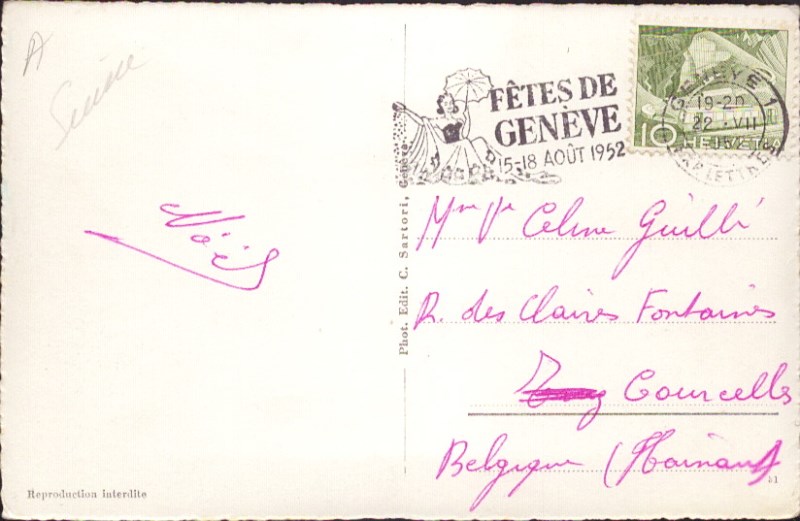 A
Suisse
FÊTES DE
GENÈVE
15-18 AOÛT 1952
GENEVE 1
19-20
22.VII
1952
10 HELVETIA
Noël
Phot. Edit. C. Sartori, Genève
Mme Ve Celine Guillé
R. des Claires Fontaines
Courcelles
Belgique (Hainaut)
Reproduction interdite